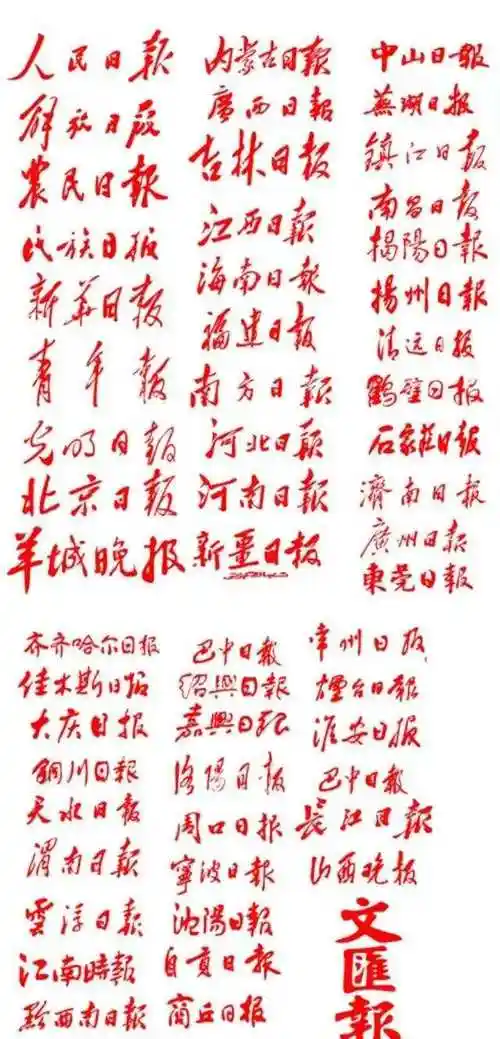 人民日報
解放日报
農民日報
民族日报
新华日报
青年报
光明日報
北京日報
羊城晚报
内蒙古日報
廣西日報
吉林日报
江西日報
海南日報
福建日报
南方日報
河北日報
河南日報
新疆日报
中山日報
蕪湖日报
鎮江日報
南昌日报
揭陽日報
揚州日報
清远日报
鶴壁日报
石家莊日报
濟南日报
廣州日报
東莞日報
齐齐哈尔日报
佳木斯日报
大庆日报
銅川日報
天水日報
渭南日報
雲浮日報
江南時報
黔西南日報
巴中日報
绍興日報
嘉興日报
洛陽日报
周口日报
寧波日報
沈陽日報
自貢日報
商丘日报
常州日报
煙台日報
淮安日报
巴中日報
長江日報
山西晚报
文
匯
報